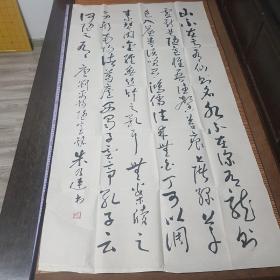 山不在高有仙則名水不在深有龍則
靈斯是陋室惟吾德馨苔痕上階綠草
色入簾青談笑有鴻儒往來無白丁可以調
素琴閱金經無絲竹之亂耳無案牘之
勞形南陽諸葛廬西蜀子雲亭孔子云
何陋之有 唐劉禹錫陋室銘 朱 書